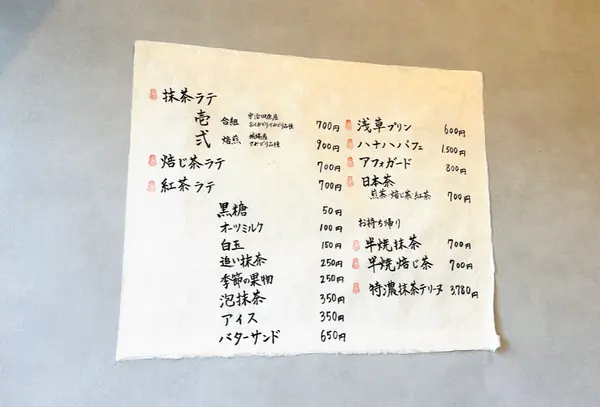 抹茶ラテ
壱 合組 700円
弐 焙煎 900円
焙じ茶ラテ 700円
紅茶ラテ 700円
黒糖 50円
オーツミルク 100円
白玉 150円
追い抹茶 250円
季節の果物 250円
泡抹茶 350円
アイス 350円
バターサンド 650円
浅草プリン 600円
ハナハパフェ 1,500円
アフォガード 800円
日本茶
煎茶・焙じ茶・紅茶 700円
お持ち帰り
半焼抹茶 700円
半焼焙じ茶 700円
特濃抹茶テリーヌ 3,780円